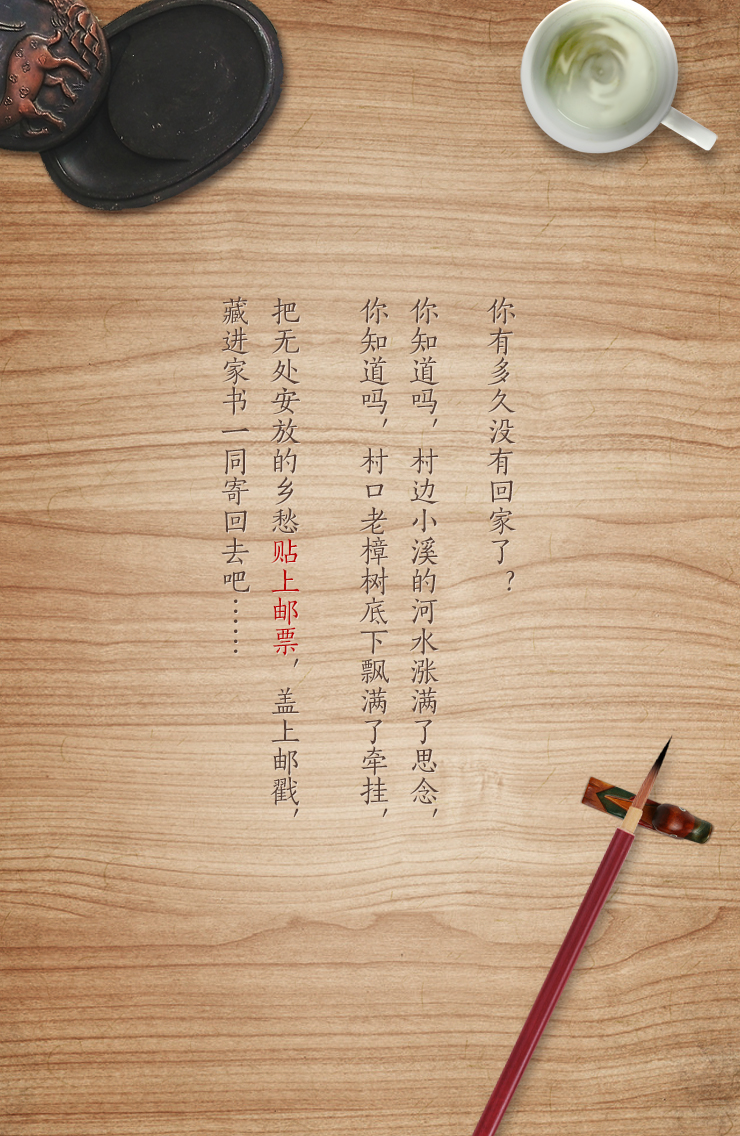 你有多久没有回家了？
你知道吗，村边小溪的河水涨满了思念，
你知道吗，村口老樟树底下飘满了牵挂，
把无处安放的乡愁贴上邮票，盖上邮戳，
藏进家书一同寄回去吧……